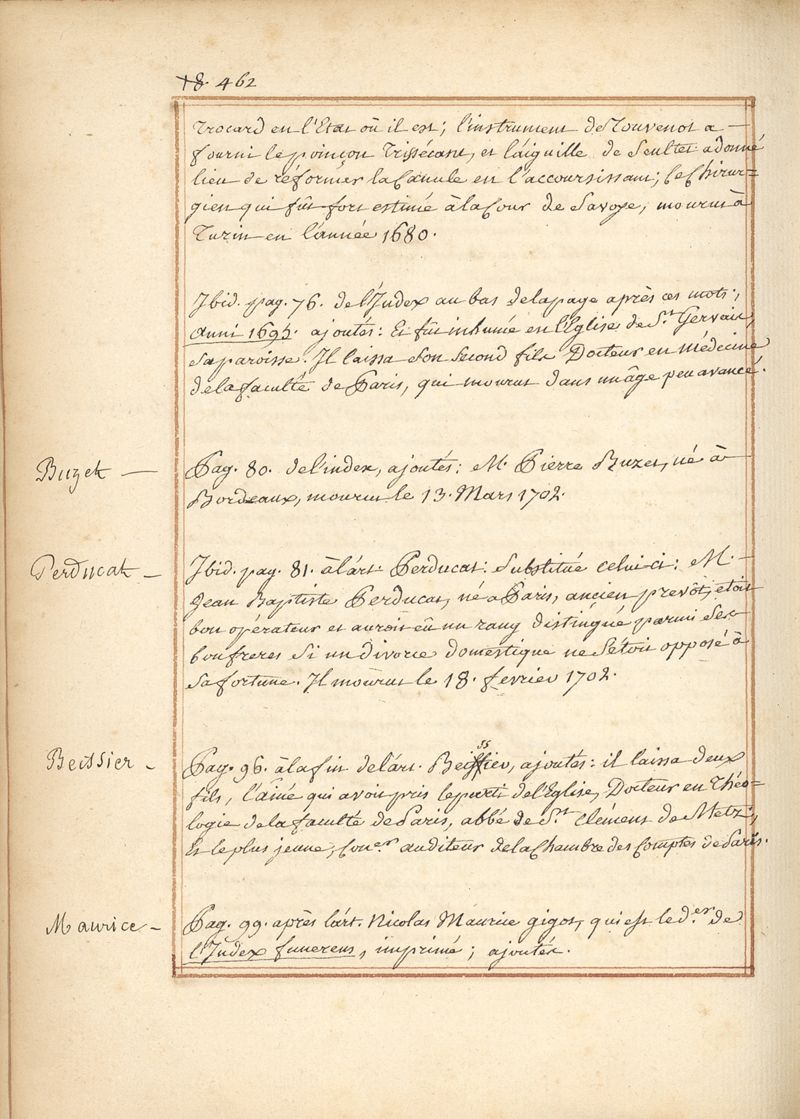 462
Trocard en l'Etat où il est; l'instrument de Touvenot a
fourni le poinçon Trissécant, et l'aiguille de Scultet a donné
lieu de réformer la Canule en l'accourcissant; Ce Chirur-
gien qui fût fort estimé à la Cour de Savoye, mourut à
Turin en l'année 1680.
Ibid. pag. 76. de l'Index au bas de la page après ces mots;
Anni 1695. ajoutés: Et fût inhumé en l'Eglise de St. Gervais,
sa paroisse. Il laissa son second fils Docteur en médecine
de la faculté de Paris, qui mourut dans un âge peu avancé.
Buzet —
Pag. 80. de l'index, ajoutés: M. Pierre Buzet, né à
Bordeaux, mourut le 13. Mars 1702.
Perducat —
Ibid. pag. 81. à l'art. Perducat: Substitué celui-ci: M. —
Jean Baptiste Perducat, né à Paris, ancien prevôt, etoit
bon opérateur et auroit eû un rang distingué parmi ses
confreres si un divorce domestique ne s'étoit opposé à
sa fortune. Il moûrut le 18. fevrier 1702.
Beissier -
Pag. 96. à la fin de l'art. Beissier, ajoutés: il laissa deux
fils, l'aîné qui avoit pris le parti de l'Eglise, Docteur en Théo-
logie de la faculté de Paris, abbé de St. Clément de Metz;
Et le plus jeune, Con.er auditeur de la Chambre des Comptes de Paris.
Maurice -
Pag. 99. après l'art. Nicolas Maurice gigot, qui est le d.er de
l'Index funereus, imprimé; ajoutés.